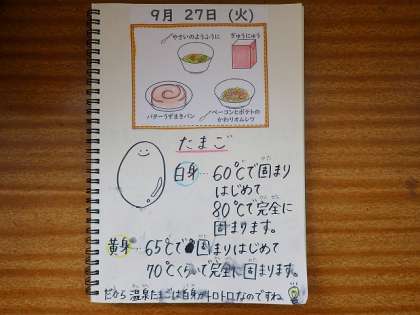 9月 27日 (火)
やさいのようふうに
ぎゅうにゅう
バターうずまきパン
ベーコンとポテトの
かわりオムレツ
たまご
白身…60℃で固まり
はじめて
80℃で完全に
固まります。
黄身…65℃で固まりはじめて
70℃くらいで完全に固まります。
だから温泉たまごは白身がトロトロなのですね